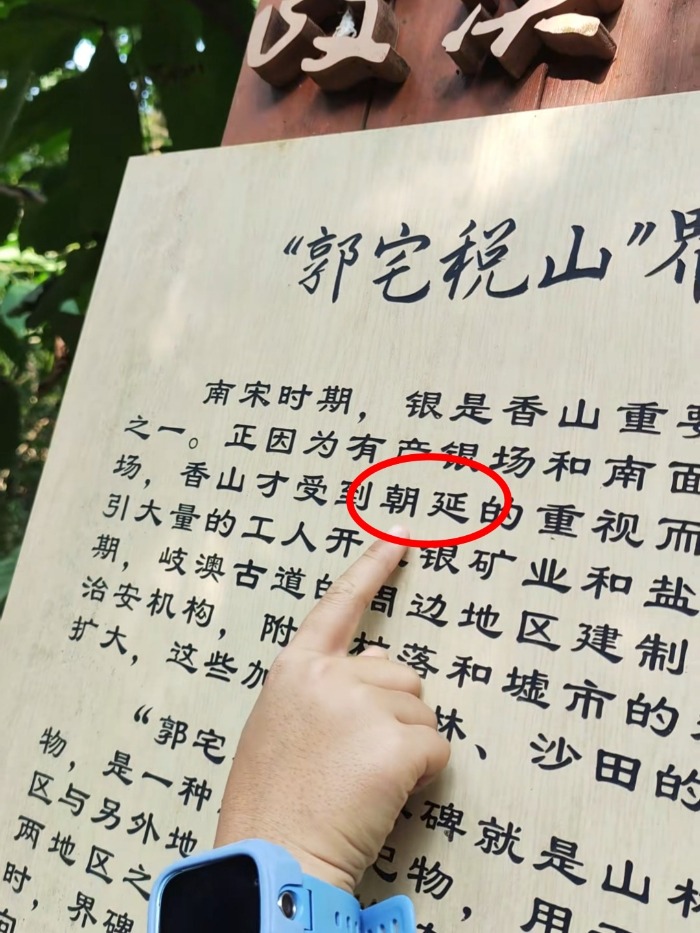 “郭宅税山”界
南宋时期，银是香山重要
之一。正因为有产银场和南面
场，香山才受到朝延的重视而
引大量的工人开 银矿业和盐
期，岐澳古道的周边地区建制
治安机构，附 村落和墟市的
扩大，这些加 林、沙田的
“郭宅
物，是一种 碑就是山林
区与另外地 记物，用
两地区之
时，界碑